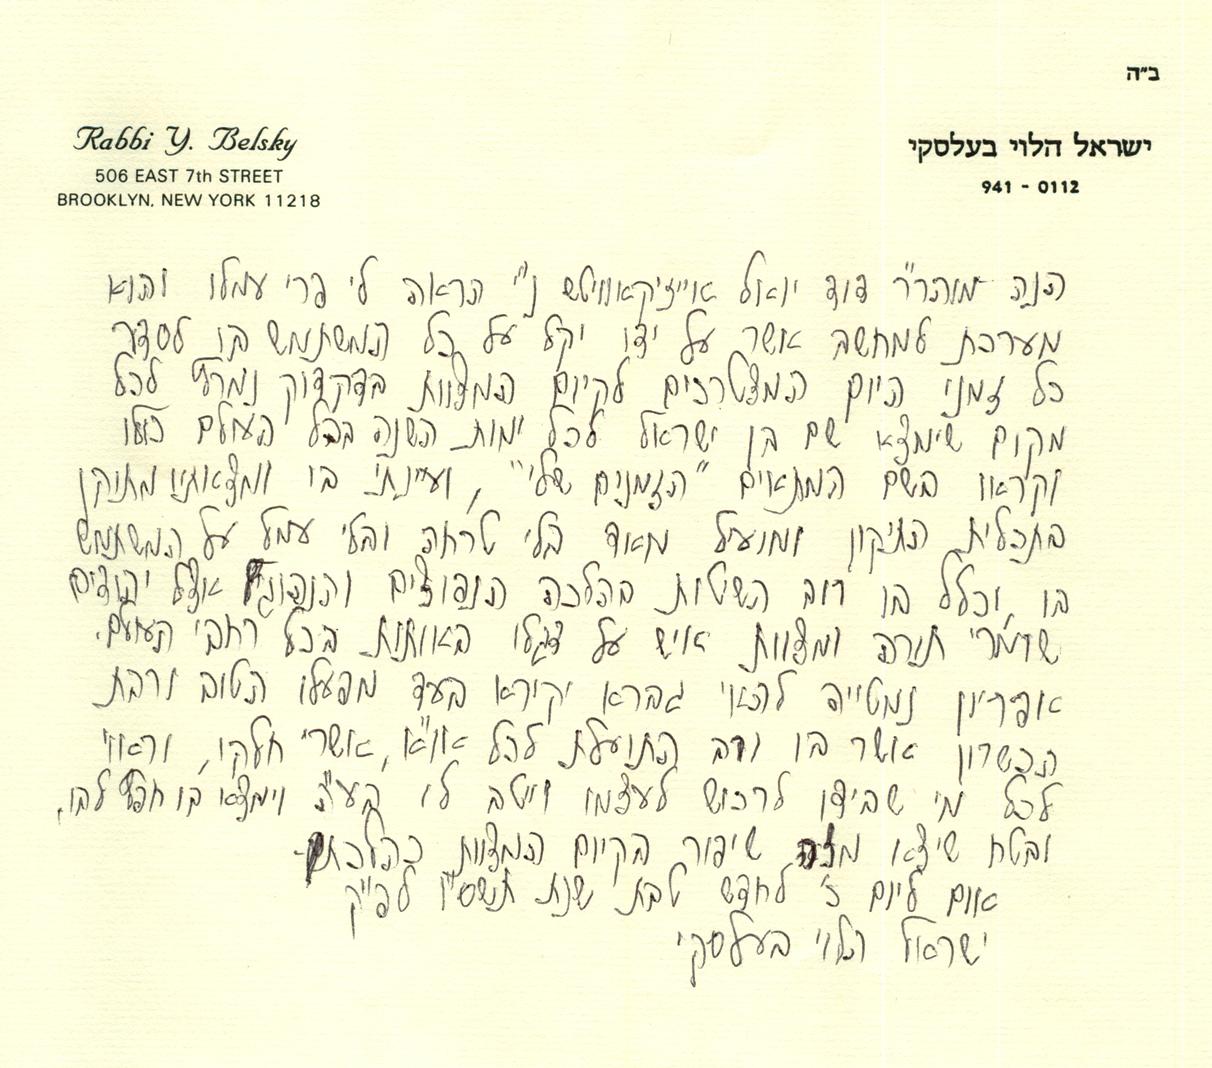 ב"ה
Rabbi Y. Belsky
506 EAST 7th STREET
BROOKLYN, NEW YORK 11218
ישראל הלוי בעלסקי
941 - 0112
הנה מוהר"ר דוד יואל אייזיקאוויטש נ"י הראה לי פרי עמלו והוא
מערכת למחשב אשר על ידו יקל על כל המשתמש בו לסדר
כל זמני היום המצטרכים לקיום המצוות בדקדוק נמרץ לכל
מקום שימצא שם בן ישראל לכל ימות השנה בכל העולם כולו
וקראו בשם המתאים "הזמנים שלי", ועיינתי בו ומצאותיו מתוקן
בתכלית התיקון ומועיל מאוד בלי טרחה ובלי עמל על המשתמש
בו, וכלל בו רוב השיטות בהלכה הנפוצים והנהוגים אצל יהודים
שומרי תורה ומצוות איש על דגלו באותות בכל רחבי העולם.
אפריון נמטייה להאי גברא יקירא בעד מפעלו הטוב ורבת
הכשרון אשר בו ורב התועלת לכל או"א, אשרי חלקו, וראוי
לכל מי שבידו לרכוש לעצמו וייטב לו בעה"י וימצא בו חפץ לבו,
ובטח שיצא מזה שיפור בקיום המצוות כהלכתן.
אום ליום ז' לחדש טבת שנת תשס"ו לפ"ק
ישראל הלוי בעלסקי